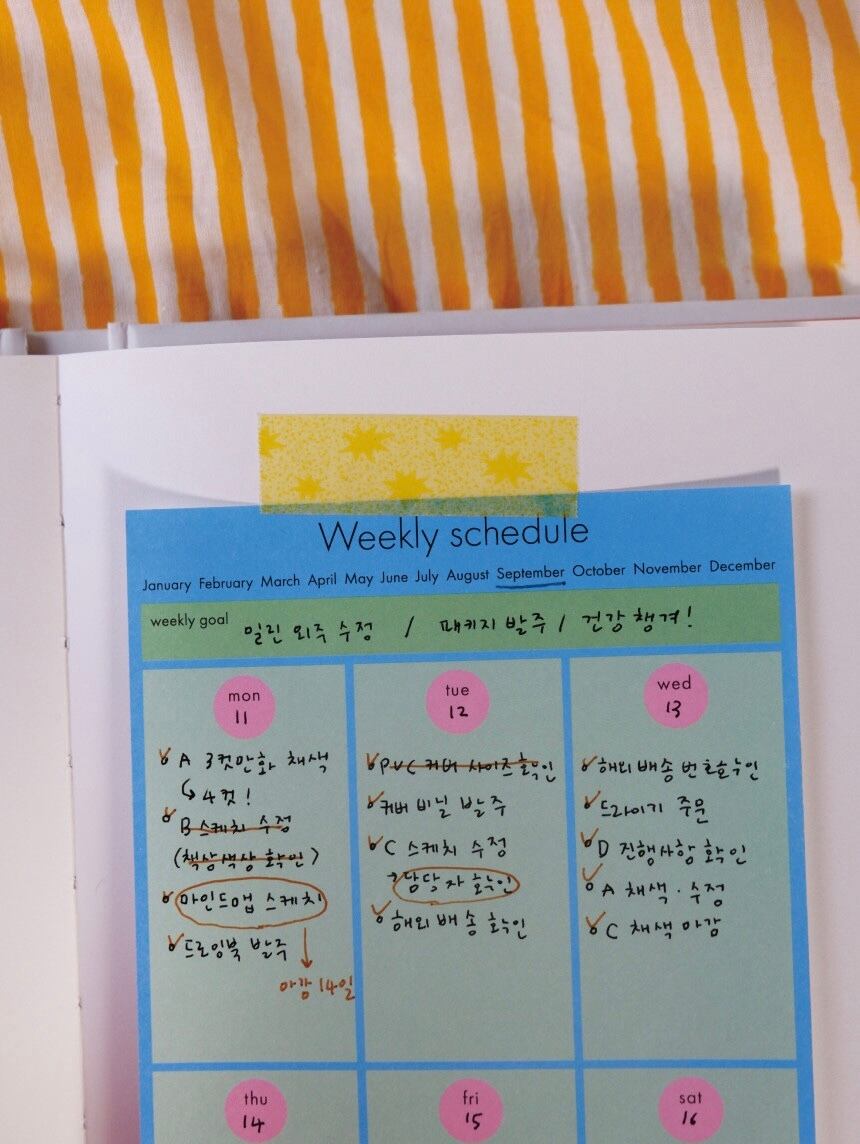 Weekly schedule
January February March April May June July August September October November December
weekly goal 밀린 외주 수정 / 패키지 발주 / 건강 챙겨!
mon
11
A 3컷만화 채색
↳ 4컷!
B 스케치 수정
(책상색상 확인)
마인드맵 스케치
드로잉북 발주
마감 14일
tue
12
PVC 커버 사이즈 확인
커버 비닐 발주
C 스케치 수정
→ 담당자 확인
해외 배송 확인
wed
13
해외 배송 번호 확인
드라이기 주문
D 진행사항 확인
A 채색 · 수정
C 채색 마감
thu
14
fri
15
sat
16